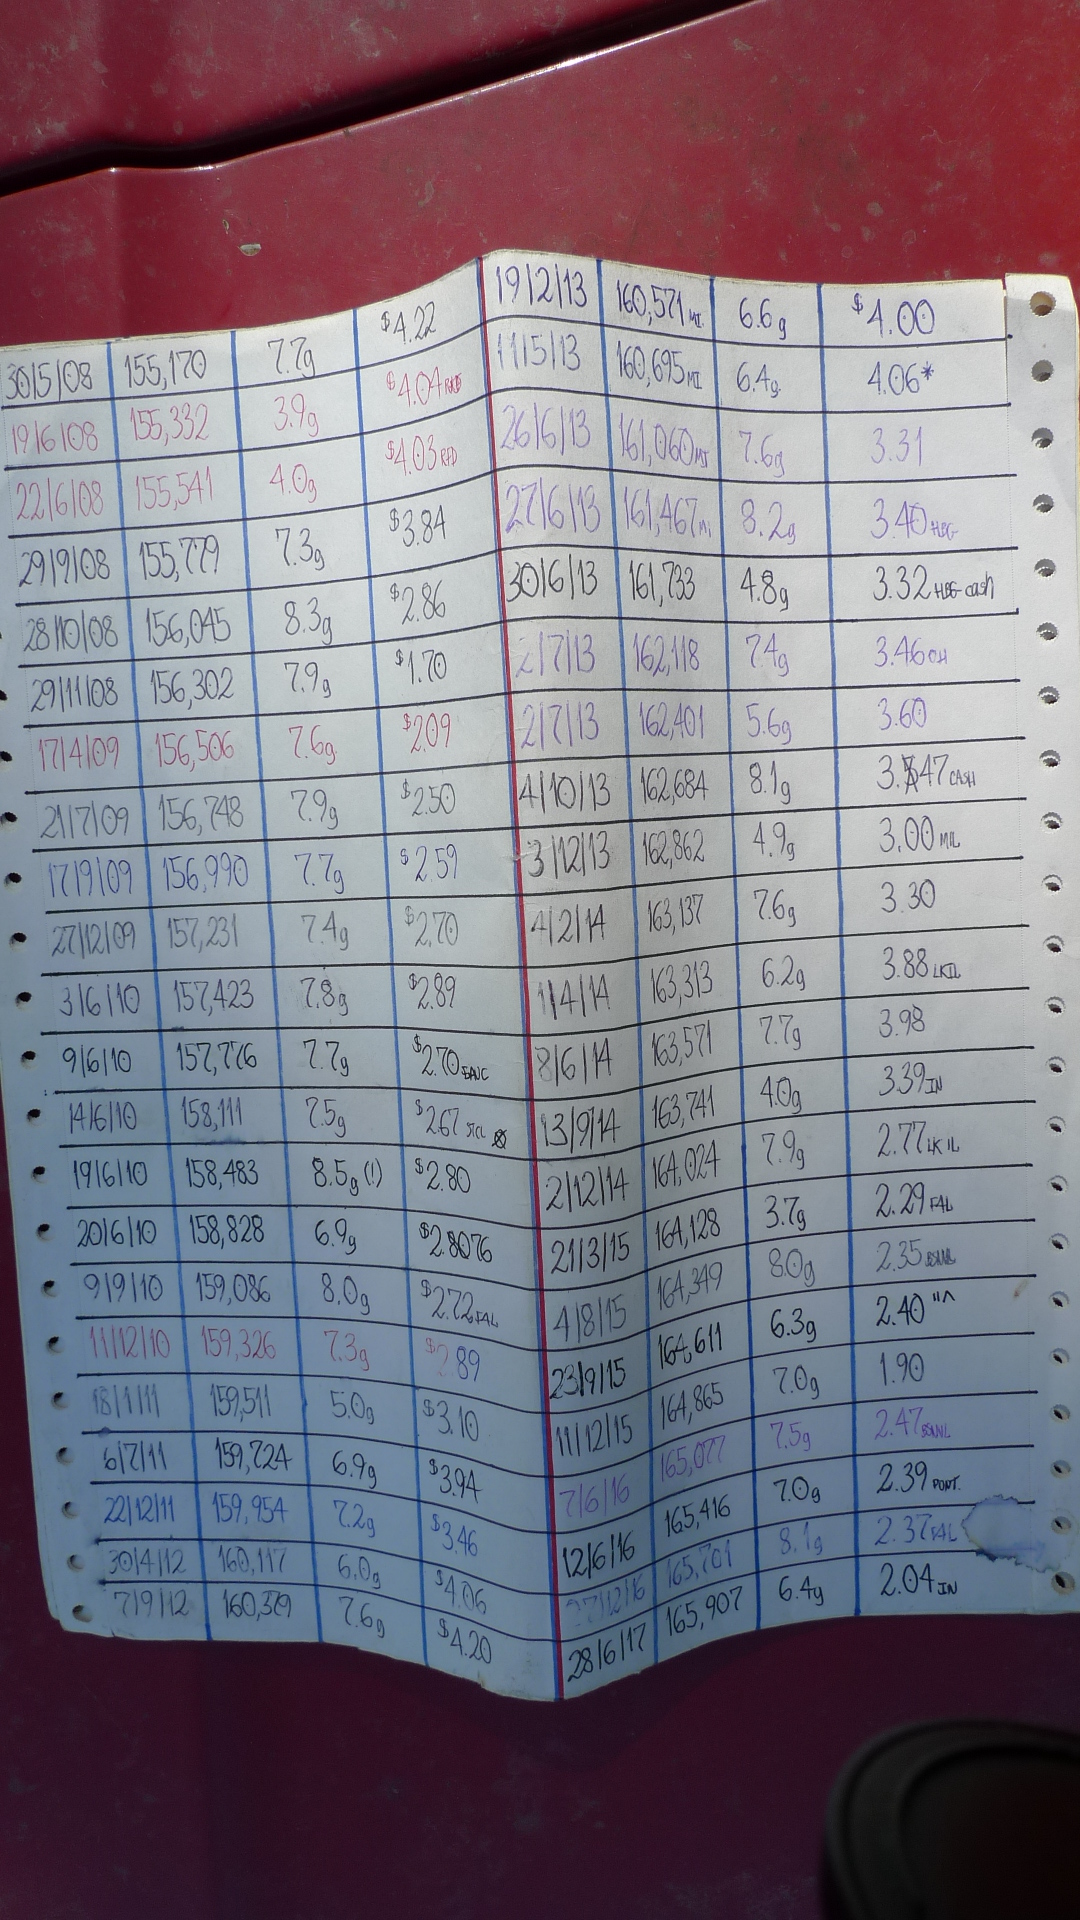 30/5/08 155,170 7.7g $4.22
19/6/08 155,332 3.9g $4.04
22/6/08 155,541 4.0g $4.03 RFD
29/9/08 155,779 7.3g $3.84
28/10/08 156,045 8.3g $2.86
29/11/08 156,302 7.9g $1.70
17/4/09 156,506 7.6g $2.09
21/7/09 156,748 7.9g $2.50
17/9/09 156,990 7.7g $2.59
27/12/09 157,231 7.4g $2.70
3/6/10 157,423 7.8g $2.89
9/6/10 157,776 7.7g $2.70
14/6/10 158,111 7.5g $2.67 STCL
19/6/10 158,483 8.5g (!) $2.80
20/6/10 158,828 6.9g $2.8076
9/9/10 159,086 8.0g $2.72 FAL
11/12/10 159,326 7.3g $2.89
18/1/11 159,511 5.0g $3.10
6/7/11 159,724 6.9g $3.94
22/12/11 159,954 7.2g $3.46
30/4/12 160,117 6.0g $4.06
7/9/12 160,379 7.6g $4.20
19/2/13 160,571 MI. 6.6g $4.00
11/5/13 160,695 MI 6.4g 4.06*
26/6/13 161,060 MI 7.6g 3.31
27/6/13 161,467 MI 8.2g 3.40 HBG
30/6/13 161,733 4.8g 3.32 HBG cash
2/7/13 162,118 7.4g 3.46 OH
2/7/13 162,401 5.6g 3.60
4/10/13 162,684 8.1g 3.47 CASH
3/12/13 162,862 4.9g 3.00 MIL
4/2/14 163,137 7.6g 3.30
1/4/14 163,313 6.2g 3.88 LKIL
8/6/14 163,571 7.7g 3.98
13/9/14 163,741 4.0g 3.39 IN
2/12/14 164,024 7.9g 2.77 LK IL
21/3/15 164,128 3.7g 2.29 FAL
4/8/15 164,349 8.0g 2.35
23/9/15 164,611 6.3g 2.40 "^
11/12/15 164,865 7.0g 1.90
7/6/16 165,077 7.5g 2.47
12/6/16 165,416 7.0g 2.39 PONT.
27/12/16 165,701 8.1g 2.37 FAL
28/6/17 165,907 6.4g 2.04 IN